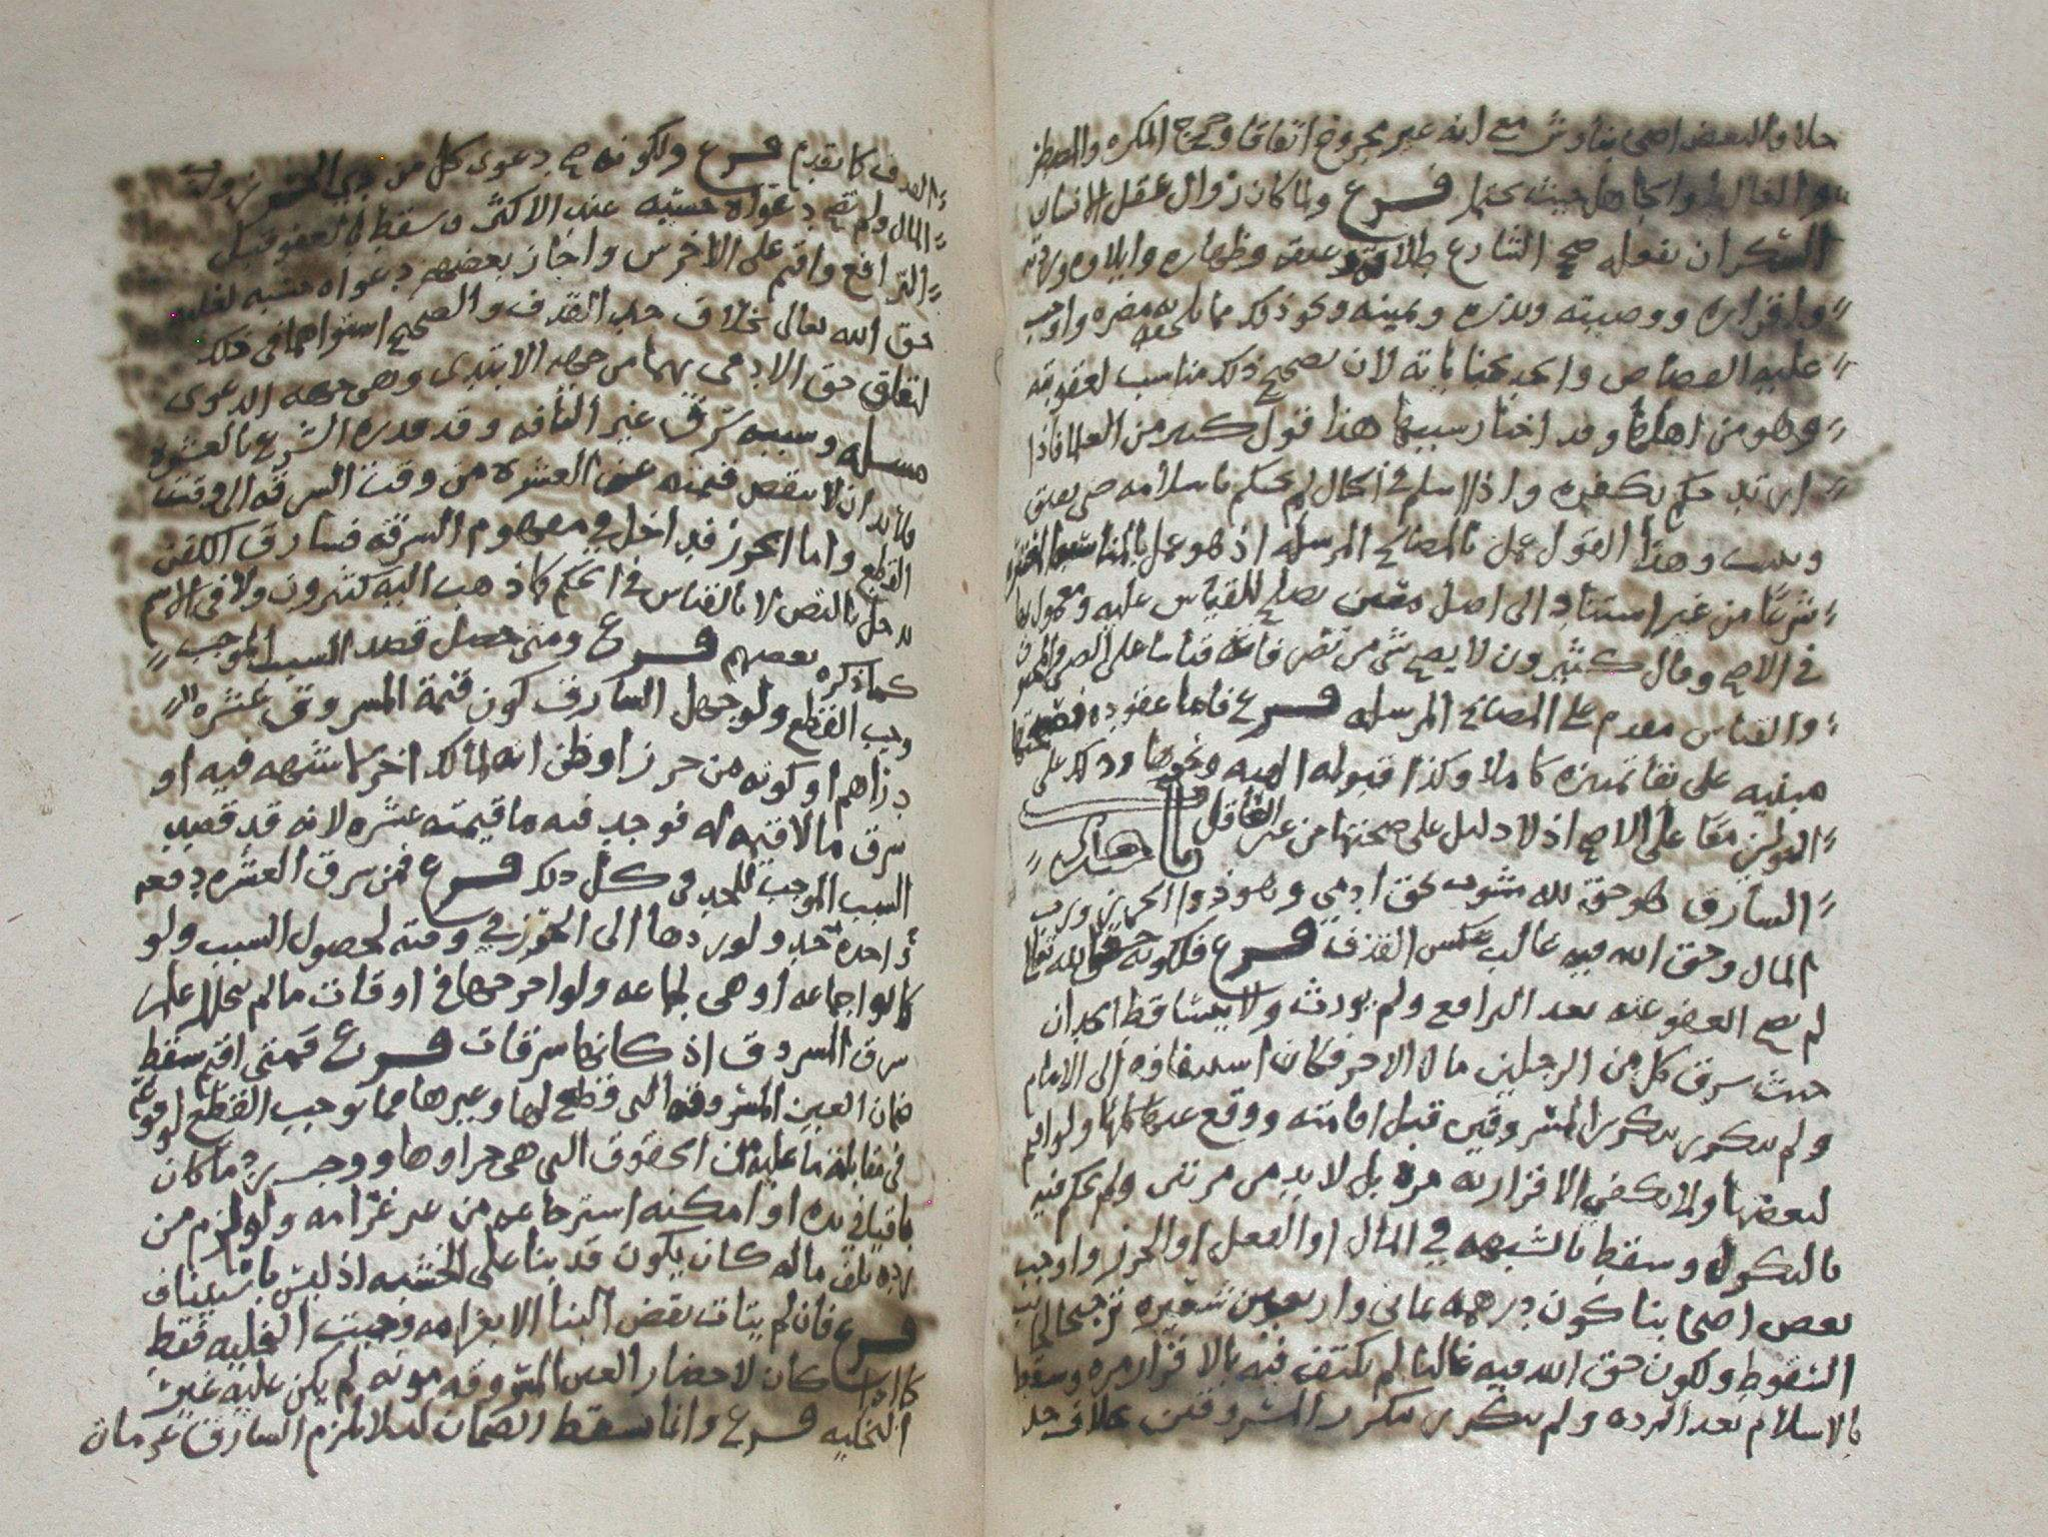 حلا والبعض اصحابنا وش مع انه غير مجروح اتفاقا وخرج المكره والمضطر
والغالط والجاهل حيث يحتمل فرع ولما كان زوال عقل الانسان
السكران بفعله صحح الشارع طلاقه وعتقه وظهاره وايلاوه وردته
واقراره ووصيته ونذره ويمينه ونحو ذلك مما يلحقه به مضره واوجب
عليه القصاص والحد بجناياته لان تصحيح ذلك مناسب لعقوبته
وهو من اهلها وقد اختار سببها هذا قول كثير من العلما فاذا
ارتد حكم بكفره واذا اسلم في الحال لم يحكم باسلامه حتى يفيق
ويثبت وهذا القول عمل بالمصالح المرسله اذ هو عمل بالمناسب المعتبره
شرعا من غير استناد الى اصل معين يصلح للقياس عليه ومعمول بها
في الاصح وقال كثيرون لا يصح شي من تصرفاته قياسا على الصبي والمجنون
والقياس مقدم على المصالح المرسله فرع فاما عقوده فصحتها
مبنيه على بقا تمييزه كاملا وكذا قبوله الهبه ونحوها وذلك على
القولين معا على الاصح اذ لا دليل على صحتها من غير العاقل
واما حد
السارق فهو حق لله مشوب بحق ادمي وهو ذو الحرز ورب
المال وحق الله فيه غالب عكس القذف فرع فلكونه حقا لله تعالى
لم يصح العفو عنه بعد الرافع ولم يورث ولا يتساقط الحدان
حيث سرق كل من الرجلين مال الاخر فكان استيفاوه الى الامام
ولم يتكرر بتكرر المسروقين قبل اقامته ووقع عنها كلها ولو اقيم
لبعضها ولا يكفي الاقرار به مره بل لا بد من مرتين ولم يحكم فيه
بالنكول وسقط بالشبهه في المال او الفعل او الحرز واوجب
بعض اصحابنا كون درهمه ثماني واربعين شعيره ترجيحا لجانب
السقوط ولكون حق الله فيه غالبا لم يكتف فيه بالاقرار مره وسقط
بالاسلام بعد الرده ولم يتكرر بتكرر المسروقين بخلاف حد
القذف كما تقدم فرع ولكونه صح دعوى كل من ذي الحرز ورب
المال ولم تصح دعواه حسبه عند الاكثر وسقط بالعفو قبل
الترافع واقيم على الاخرس واجاز بعضهم دعواه حسبه لغلبه
حق الله تعالى بخلاف حد القذف والصحيح استواهما في ذلك
لتعلق حق الادمي بهما من جهه الابتدى وهي جهه الدعوى
مسله وسببه سرق غير التافه وقد قدره الشرع بالعشره
ولا بد ان لا ينقص قيمته عن العشره من وقت السرقه الى وقت
القطع واما الحرز فداخل في مفهوم السرقه فسارق الكفن
يدخل بالنص لا بالقياس في الحكم كما ذهب اليه كثيرون ولا في الاسم
كما ذكره بعضهم فرع ومتى حصل قصد السبب الموجب
وجب القطع ولو جهل السارق كون قيمة المسروق عشره
دراهم او كونه من حرز او ظن انه لمالك اخر له شبهه فيه او
سرق ما لا قيمه له فوجد فيه ما قيمته عشره لانه قد قصد
السبب الموجب للحد في كل ذلك فرع فمن سرق العشره دفعه
واحده حد ولو ردها الى الحرز في وقته لحصول السبب ولو
كانوا جماعه او هي لجماعه ولو اخرجها في اوقات ما لم يتخلل علم
سرق المسروق اذ كانها سرقات فرع فمتى اقيم سقط
ضمان العين المسروقه التي قطع لها وغيرها مما يوجب القطع لوقوعه
في مقابلة ما عليه من الحقوق التي هي جزاوها ووجب رد ما كان
باقيا في يده او امكنه استرجاعه من غير غرامه ولو لزم من
رده تلف ماله كان يكون قد بنا على الخشبه اذ ليس باستيناف
فرع فان لم يتات نقض البنا الا بغرامه وجبت التخليه فقط
كما اذا كان لاحضار العين المسروقه مونه لم يكن عليه غير
التخليه فرع وانما سقط الضمان ليلا يلزم السارق غرمان